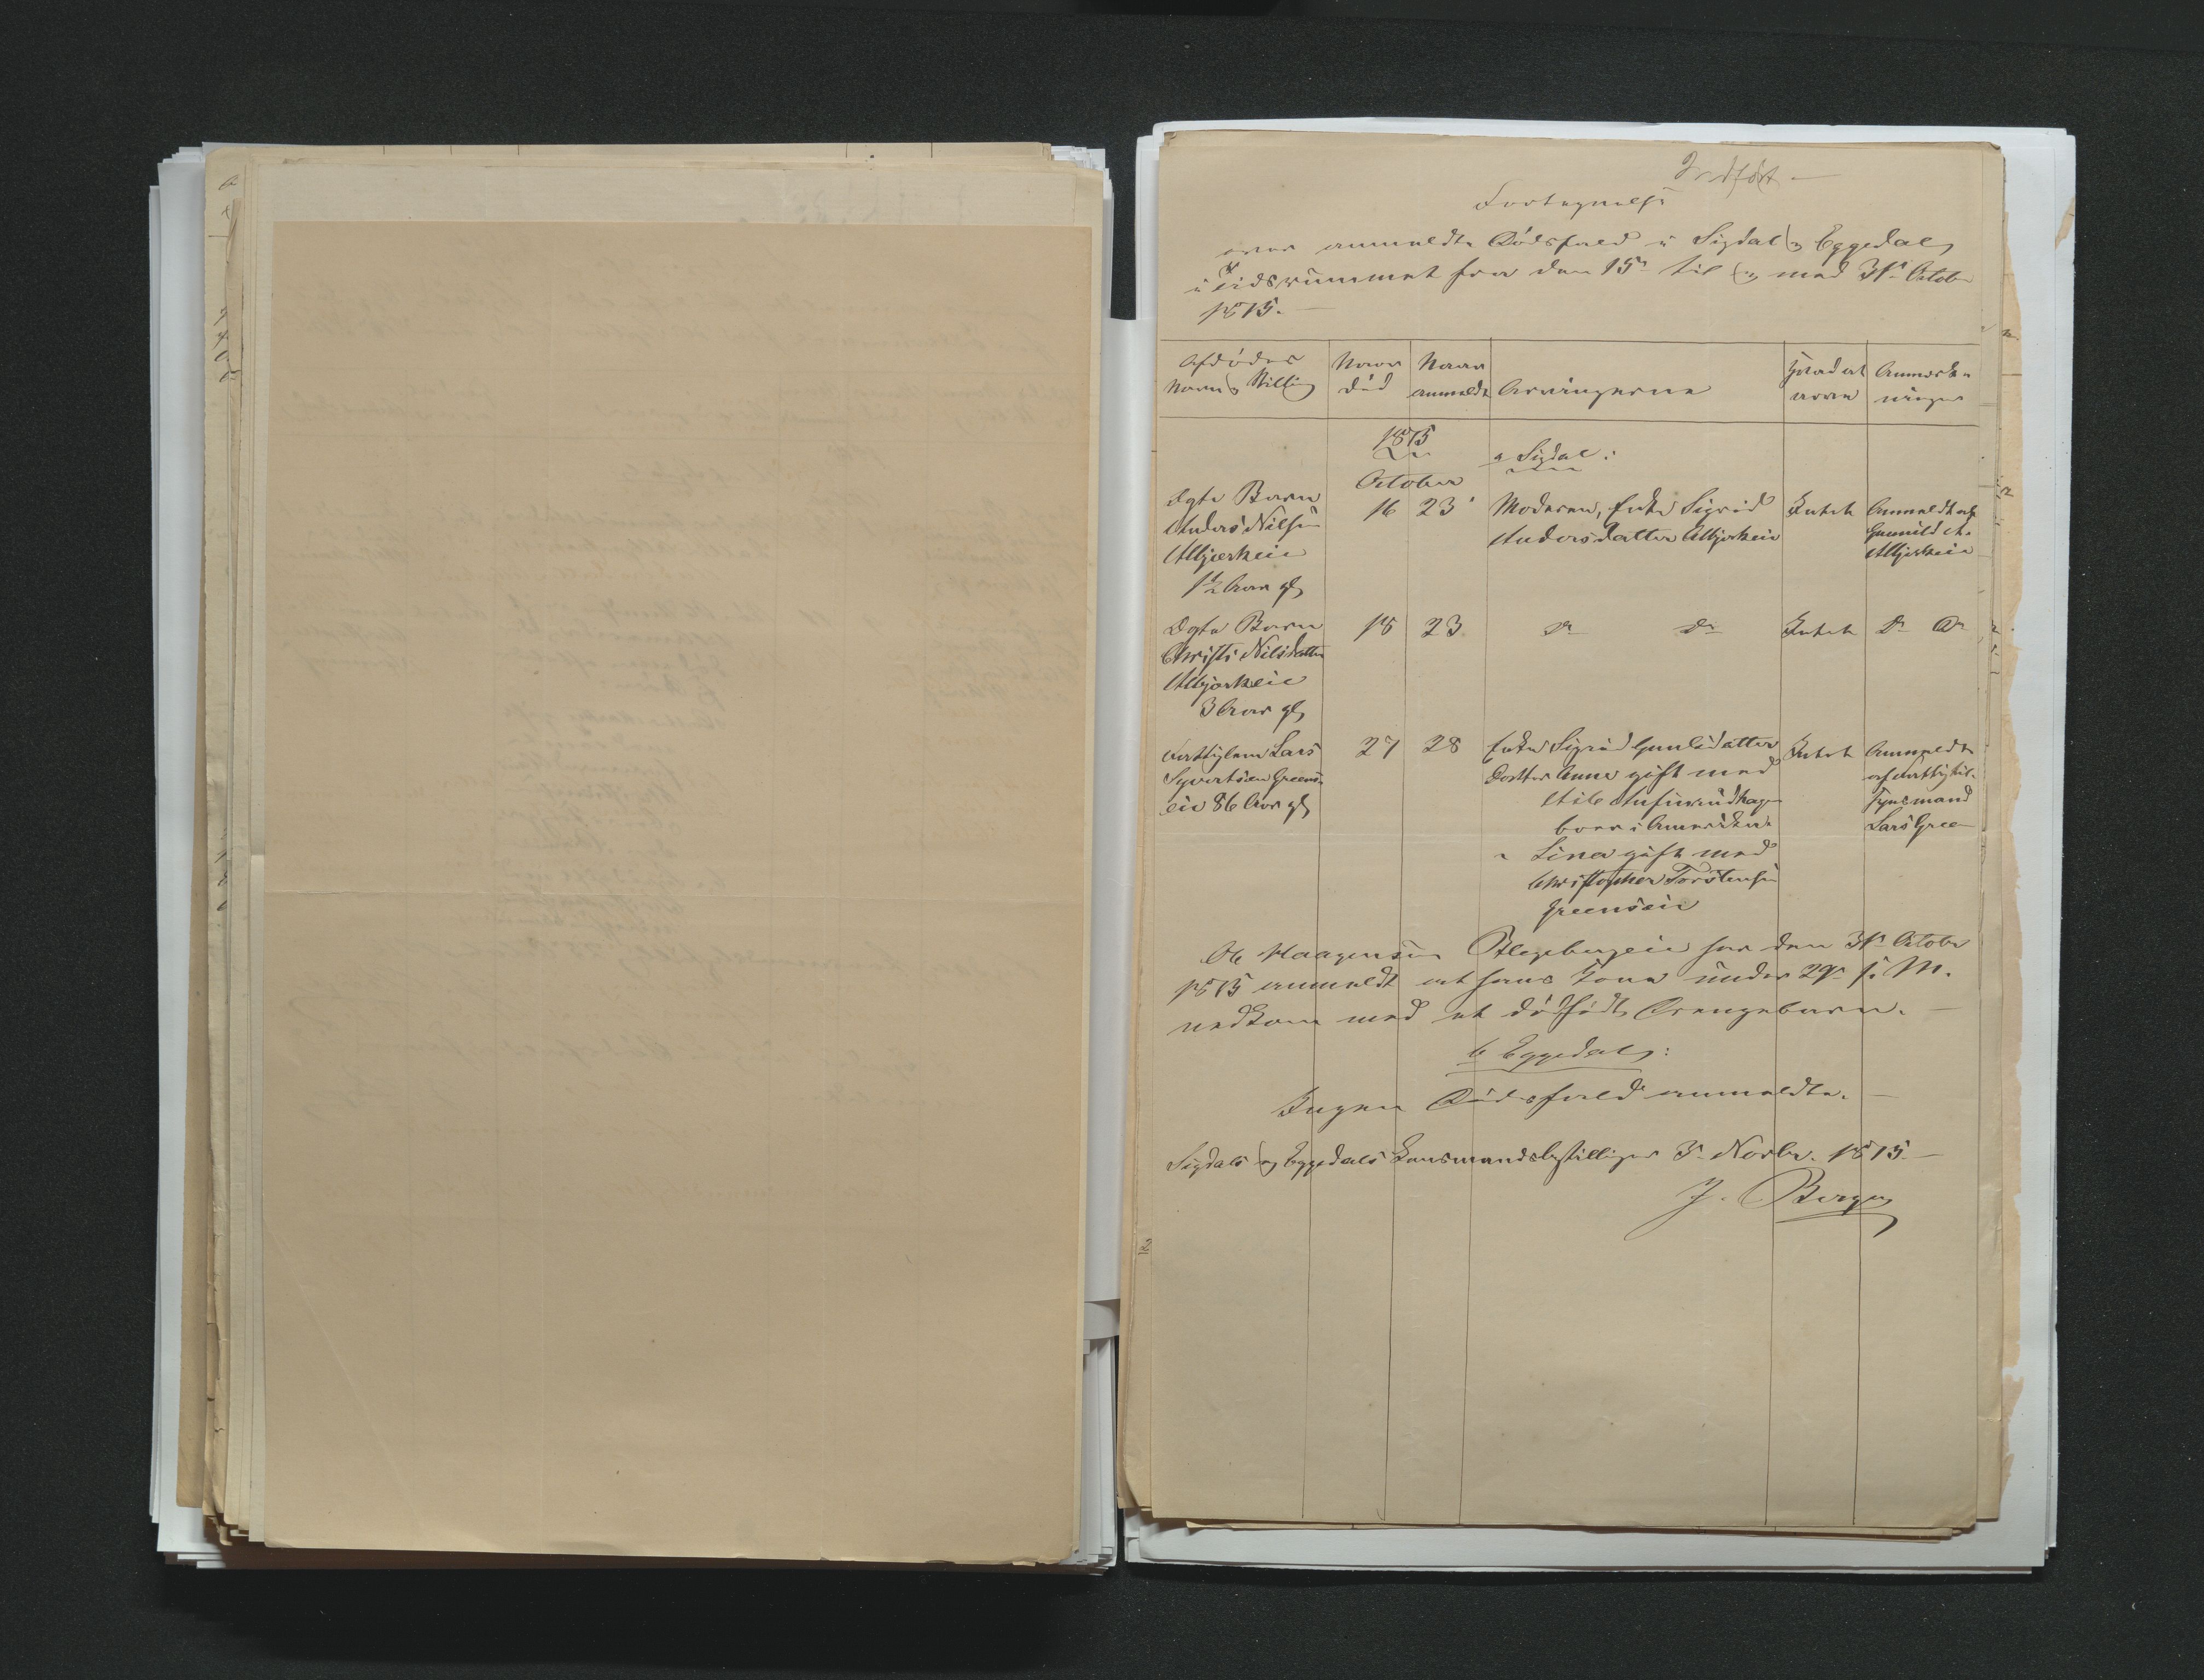 Indført. —
Fortegnelse
over anmeldte Dødsfald i Sigdal og Eggedal
i Tidsrummet fra den 15de til og med 31te October
1875. —
Afdødes
Navn & Stilling
Naar
død
Naar
anmeldt
Arvingerne
Hvad at
arve
Anmærk-
ninger
1875
October
a Sigdal:
Ægte Barn
Anders Nilsen
Albjerkeie
1½ Aar gl
16
23
Moderen, Enke Sigrid
Andersdatter Albjerkeie
Intet
Anmeldt af
Gunild A.
Albjerkeie
Ægte Barn
Christi Nilsdatter
Albjerkeie
3 Aar gl
18
23
Do Do
Intet
Do Do
Fattiglem Lars
Syvertsen Greens-
eie 86 Aar gl
27
28
Enke Sigrid Gunlidatter
Datter Anna gift med
boer i Amerika
" Lina gift med
Christopher Torstensen
Greenseie
Intet
Anmeldt
af Fattigtil-
synsmand
Lars Green
Ole Haagensen har den 31te October
1875 anmeldt at hans Kone under 29de s. M.
nedkom med et dødfødt Drengebarn. —
b Eggedal:
Ingen Dødsfald anmeldte. —
Sigdals og Eggedals Lensmandsbestillinger 3. Novbr. 1875. —
J. Berger